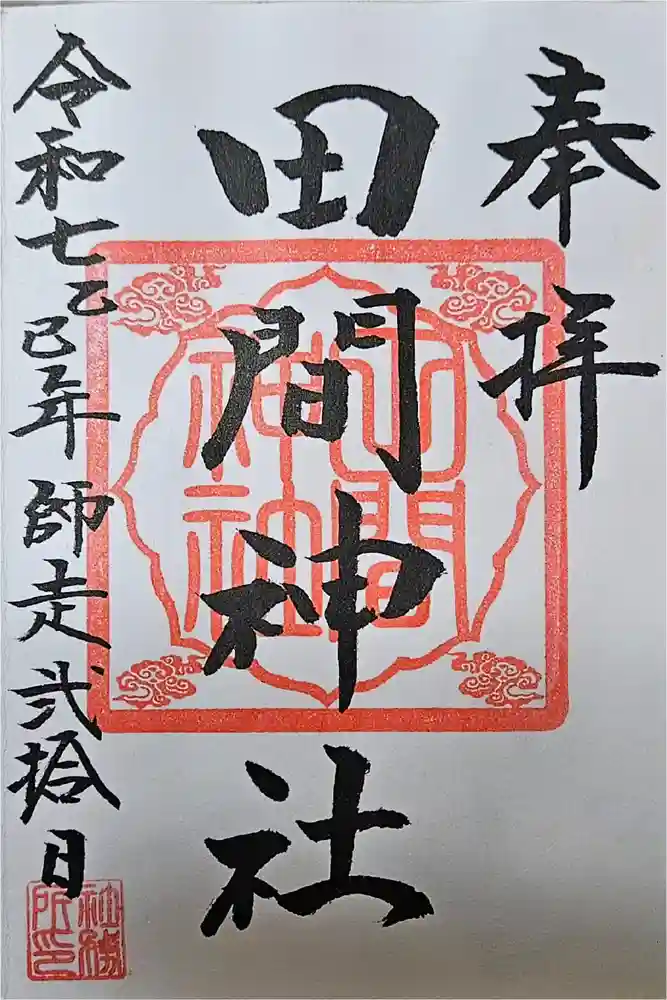 奉拝
田間神社
令和七乙巳年 師走 弐拾日
田間神社
社務所印